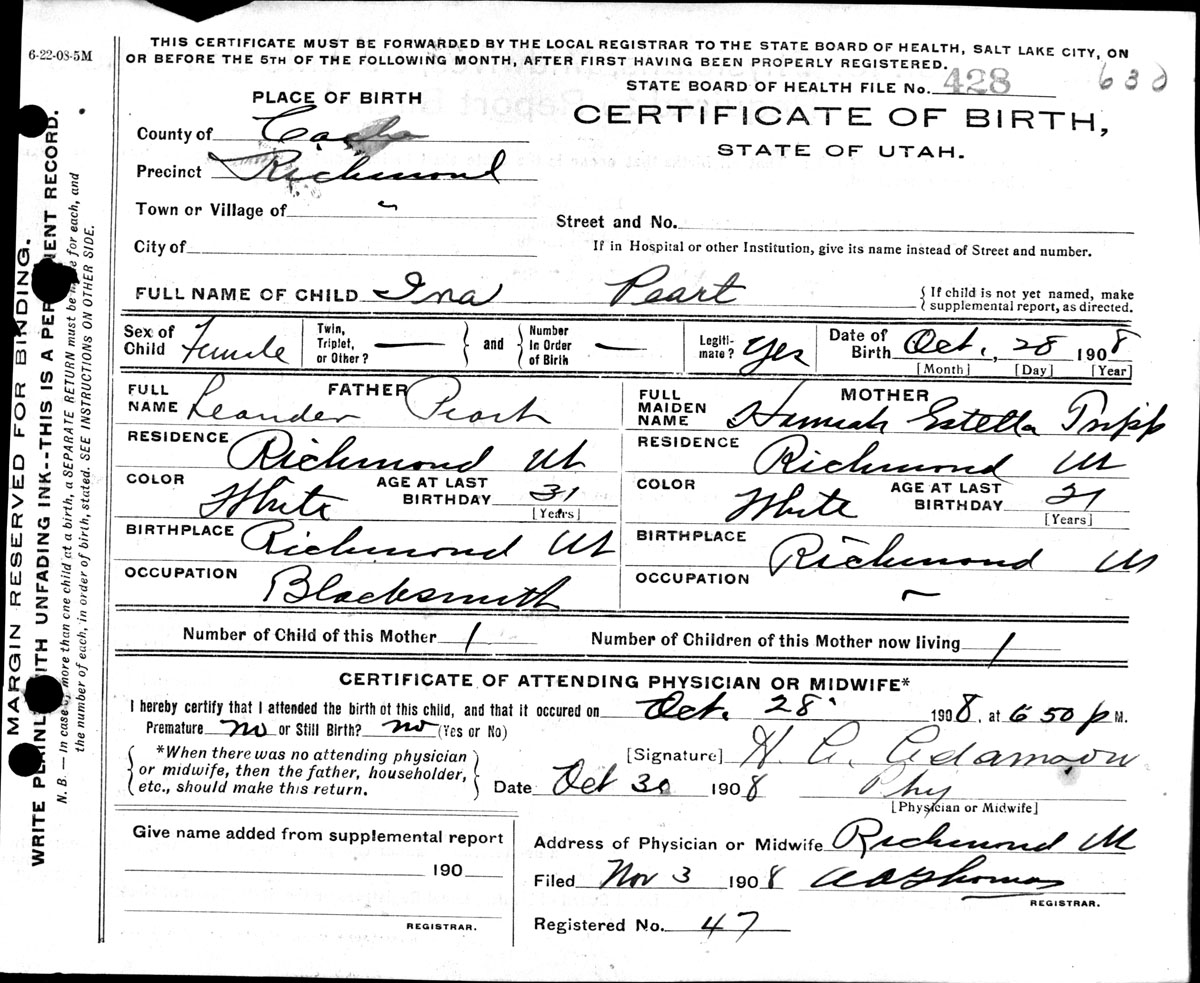 6-22-08-5M
THIS CERTIFICATE MUST BE FORWARDED BY THE LOCAL REGISTRAR TO THE STATE BOARD OF HEALTH, SALT LAKE CITY, ON
OR BEFORE THE 5TH OF THE FOLLOWING MONTH, AFTER FIRST HAVING BEEN PROPERLY REGISTERED.
STATE BOARD OF HEALTH FILE No. 428
630
PLACE OF BIRTH
CERTIFICATE OF BIRTH,
STATE OF UTAH.
County of Cache
Precinct Richmond
Town or Village of "
Street and No.
City of
If in Hospital or other Institution, give its name instead of Street and number.
FULL NAME OF CHILD Ina Peart
{ If child is not yet named, make
supplemental report, as directed.
Sex of Child Female
Twin, Triplet, or Other? —
and
Number In Order of Birth —
Legitimate? Yes
Date of Birth Oct. 28 1908
[Month] [Day] [Year]
FATHER
FULL NAME Leander Peart
RESIDENCE Richmond Ut
COLOR White
AGE AT LAST BIRTHDAY 31
[Years]
BIRTHPLACE Richmond Ut
OCCUPATION Blacksmith
MOTHER
FULL MAIDEN NAME Hannah Estella Tripp
RESIDENCE Richmond Ut
COLOR White
AGE AT LAST BIRTHDAY
[Years]
BIRTHPLACE Richmond Ut
OCCUPATION –
Number of Child of this Mother 1
Number of Children of this Mother now living 1
CERTIFICATE OF ATTENDING PHYSICIAN OR MIDWIFE*
I hereby certify that I attended the birth of this child, and that it occured on Oct. 28 1908, at 6 50 p M.
Premature no or Still Birth? no (Yes or No)
*When there was no attending physician
or midwife, then the father, householder,
etc., should make this return.
[Signature] Adamson
Date Oct 30 1908
Phy
[Physician or Midwife]
Give name added from supplemental report
190
REGISTRAR.
Address of Physician or Midwife Richmond Ut
Filed Nov 3 1908 Thomas
REGISTRAR.
Registered No. 47
MARGIN RESERVED FOR BINDING.
WRITE PLAINLY WITH UNFADING INK--THIS IS A PERMANENT RECORD.
N. B. — In case of more than one child at a birth, a SEPARATE RETURN must be made for each, and
the number of each, in order of birth, stated. SEE INSTRUCTIONS ON OTHER SIDE.